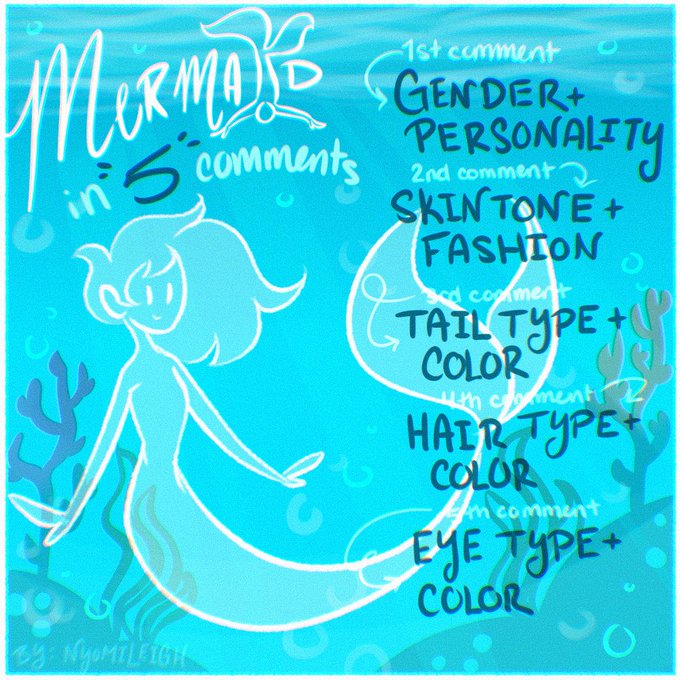 MERMAID
in "5" comments
1st comment
GENDER+
PERSONALITY
2nd comment
SKINTONE +
FASHION
3rd comment
TAIL TYPE +
COLOR
4th comment
HAIR TYPE+
COLOR
5th comment
EYE TYPE+
COLOR
BY: NYOMILEIGH